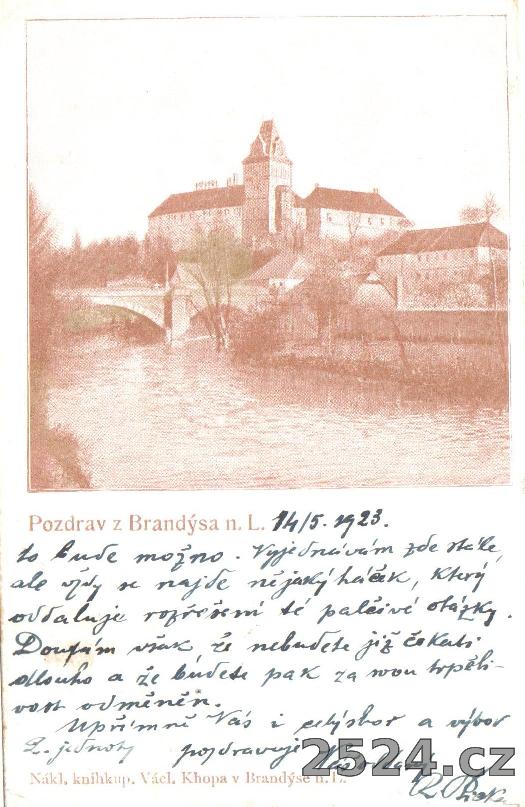 Pozdrav z Brandýsa n. L. 14/5. 1923.
to bude možno. Vyjednávám zde stále,
ale vždy se najde nějaký háček, který
oddaluje rozřešení té palčivé otázky.
Doufám však, že nebudete již čekati
dlouho a že budete pak za svou trpěli-
vost odměněn.
Upřímně Vás i celý sbor a výbor
jednoty pozdravuje
Nákl. knihkup. Václ. Khopa v Brandýse n. L.
2524.cz